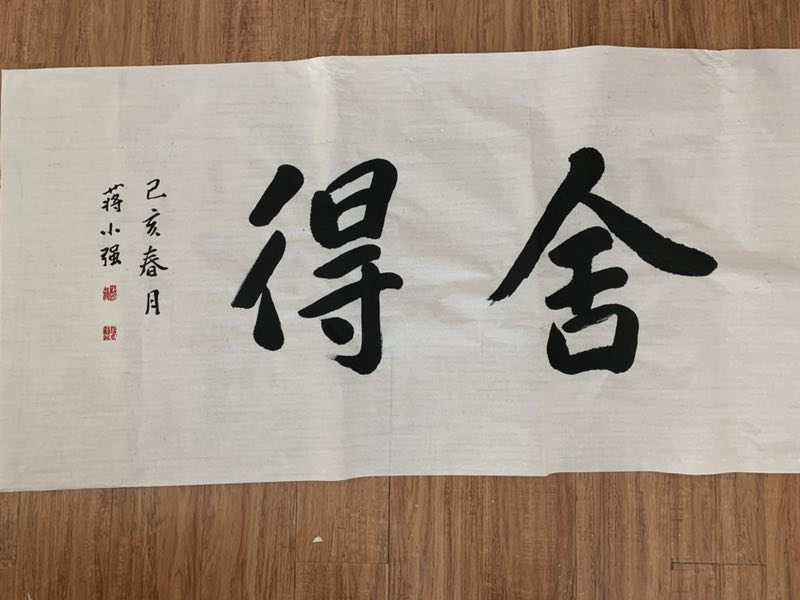 舍得
己亥春月
蒋小强